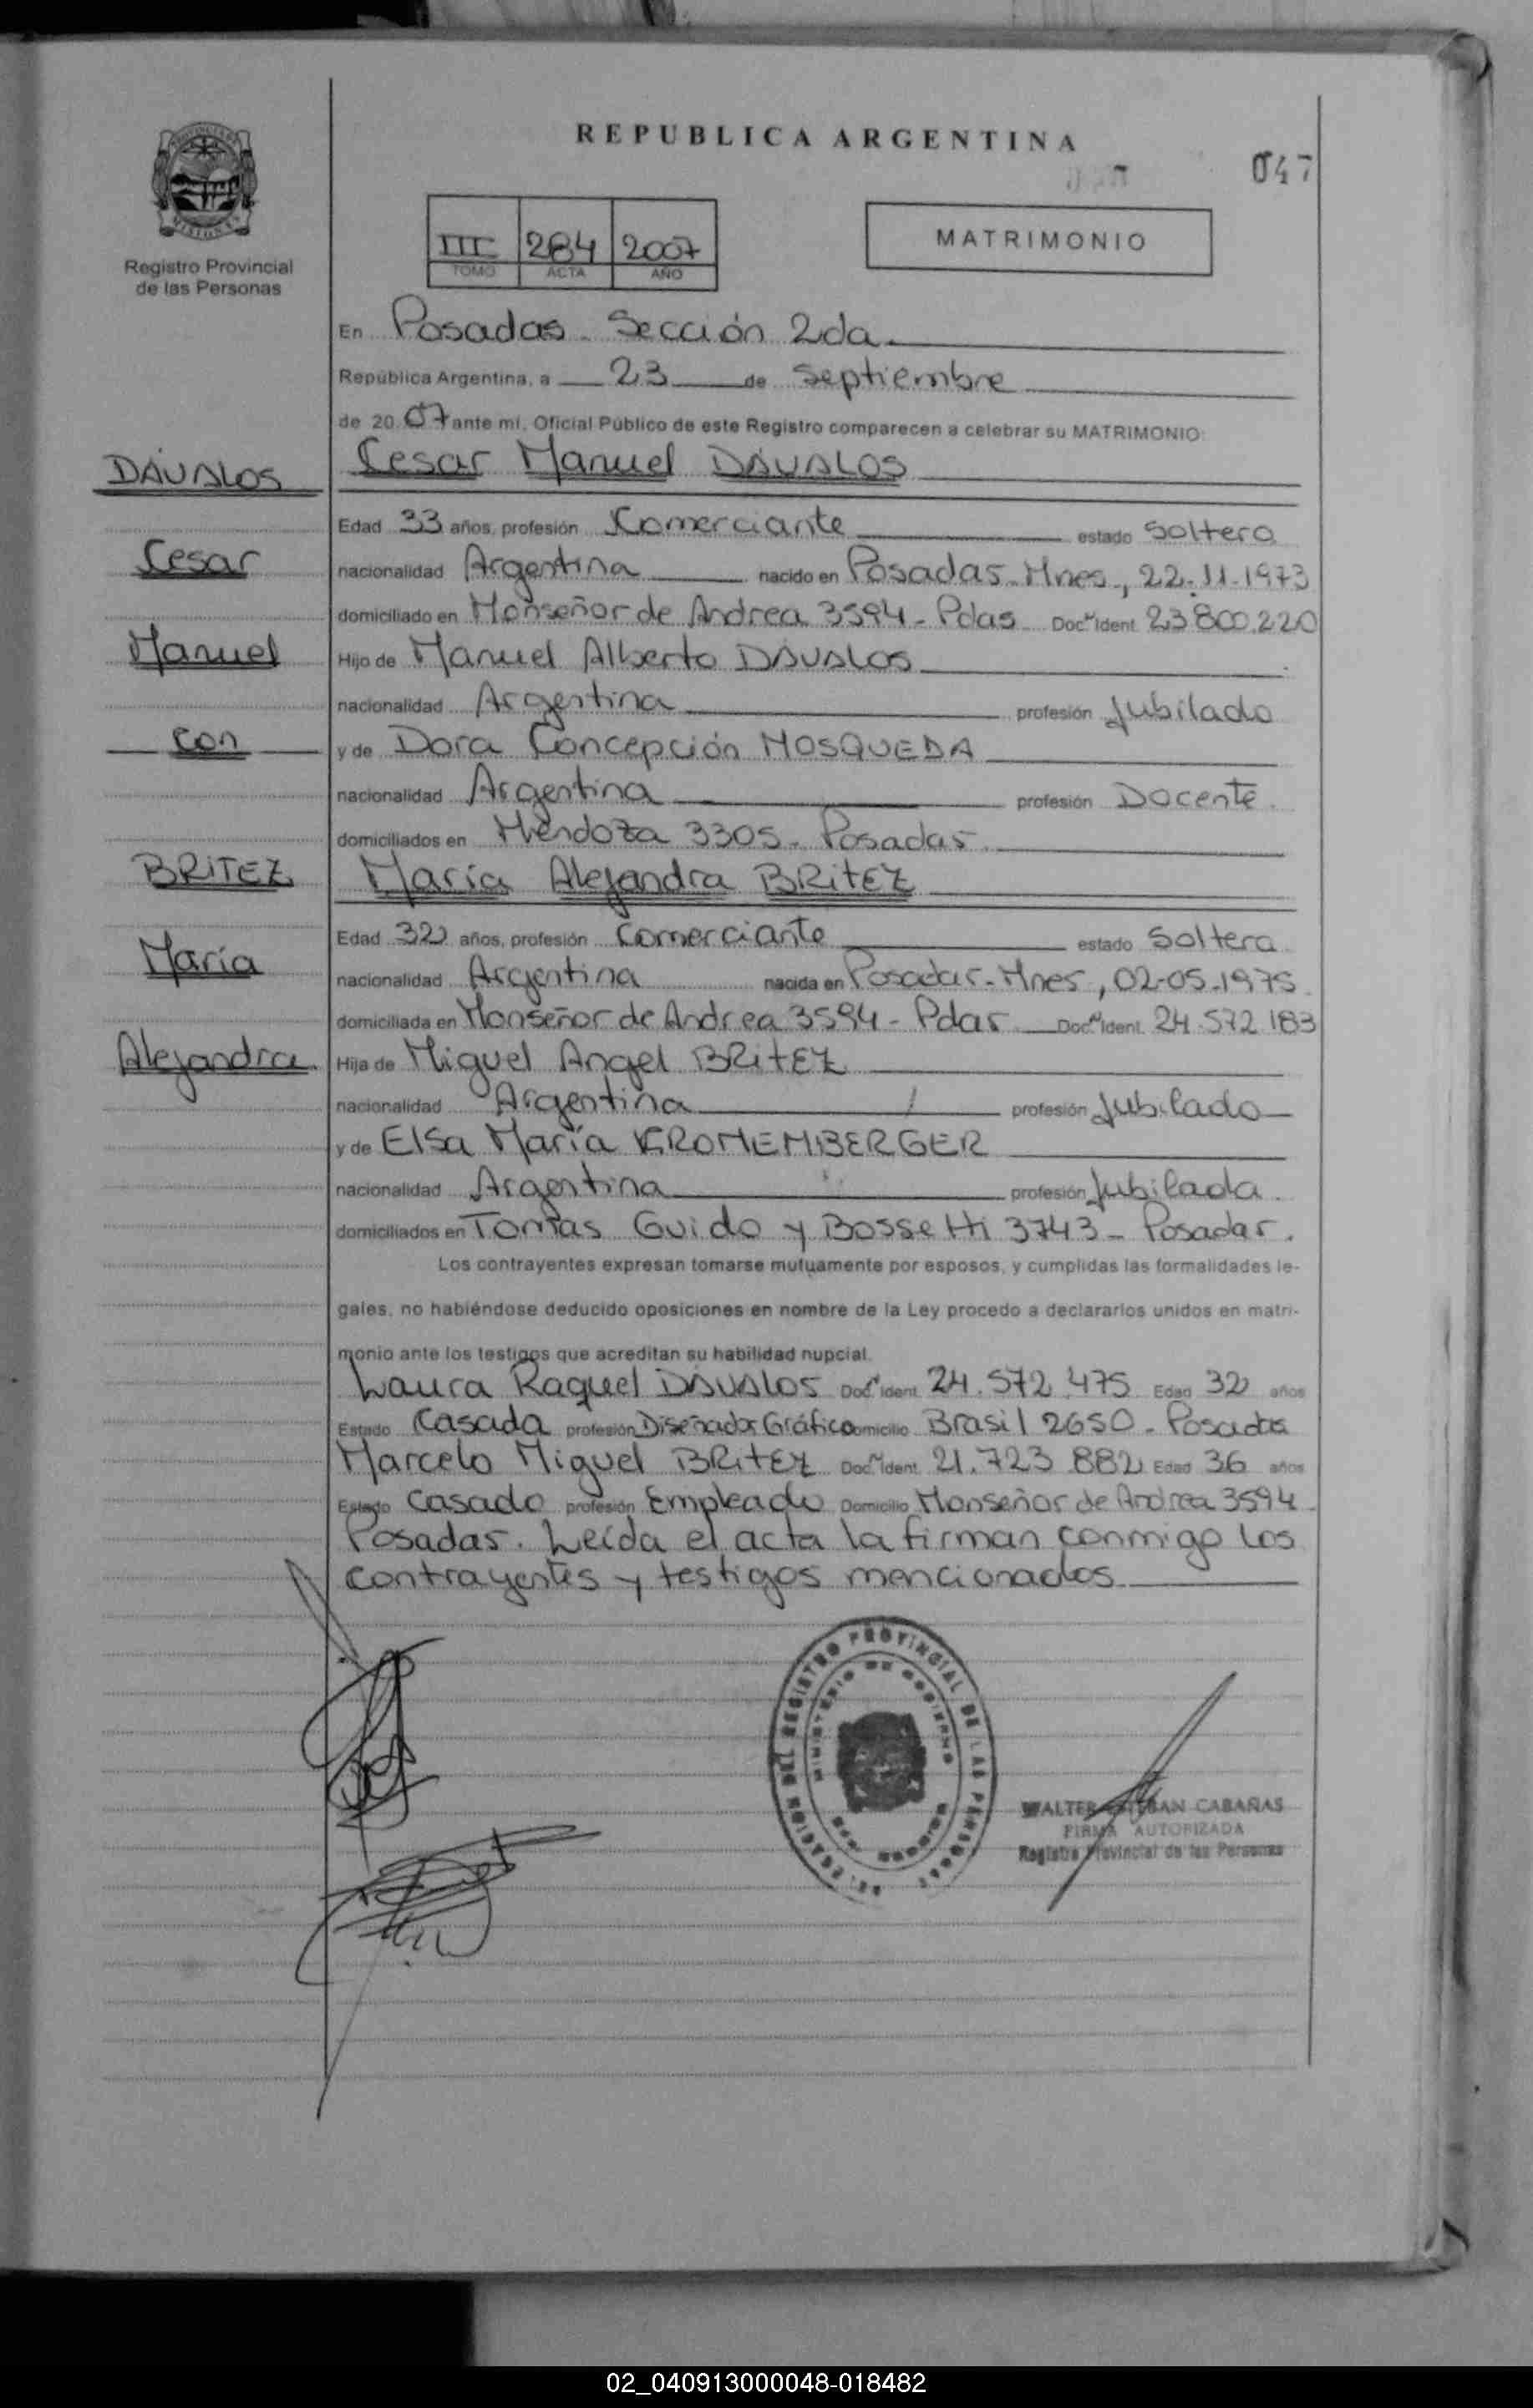 REPUBLICA ARGENTINA
047
III 284 2007
TOMO ACTA AÑO
MATRIMONIO
Registro Provincial
de las Personas
En Posadas - Sección 2da.
República Argentina, a 23 de Septiembre
de 2007 ante mí, Oficial Público de este Registro comparecen a celebrar su MATRIMONIO:
DÁVALOS
Cesar Manuel DÁVALOS
Edad 33 años, profesión Comerciante estado Soltero
Cesar
nacionalidad Argentina nacido en Posadas-Mnes, 22-11-1973
domiciliado en Monseñor de Andrea 3594 - Pdas Doc. Ident. 23.800.220
Manuel
Hijo de Manuel Alberto DÁVALOS
nacionalidad Argentina profesión Jubilado
con
y de Dora Concepción MOSQUEDA
nacionalidad Argentina profesión Docente
domiciliados en Mendoza 3305 - Posadas.
BRITEZ
María Alejandra BRITEZ
Edad 32 años, profesión Comerciante estado Soltera
María
nacionalidad Argentina nacida en Posadas-Mnes, 02-05-1975
domiciliada en Monseñor de Andrea 3594 - Pdas Doc. Ident. 24.572.183
Alejandra
Hija de Miguel Angel BRITEZ
nacionalidad Argentina profesión Jubilado
y de Elsa María KROMEMBERGER
nacionalidad Argentina profesión Jubilada
domiciliados en Tomas Guido y Bossetti 3743 - Posadas.
Los contrayentes expresan tomarse mutuamente por esposos, y cumplidas las formalidades le-
gales, no habiéndose deducido oposiciones en nombre de la Ley procedo a declararlos unidos en matri-
monio ante los testigos que acreditan su habilidad nupcial.
Laura Raquel DÁVALOS Doc. Ident. 24.572.475 Edad 32 años
Estado Casada profesión Diseñador Gráfico Domicilio Brasil 2650 - Posadas
Marcelo Miguel BRITEZ Doc. Ident. 21.723.882 Edad 36 años
Estado Casado profesión Empleado Domicilio Monseñor de Andrea 3594
Posadas. Leída el acta la firman conmigo los
contrayentes y testigos mencionados.
DELEGACION DEL REGISTRO PROVINCIAL DE LAS PERSONAS
MINISTERIO DE GOBIERNO
WALTER ESTEBAN CABAÑAS
FIRMA AUTORIZADA
Registro Provincial de las Personas
02_040913000048-018482